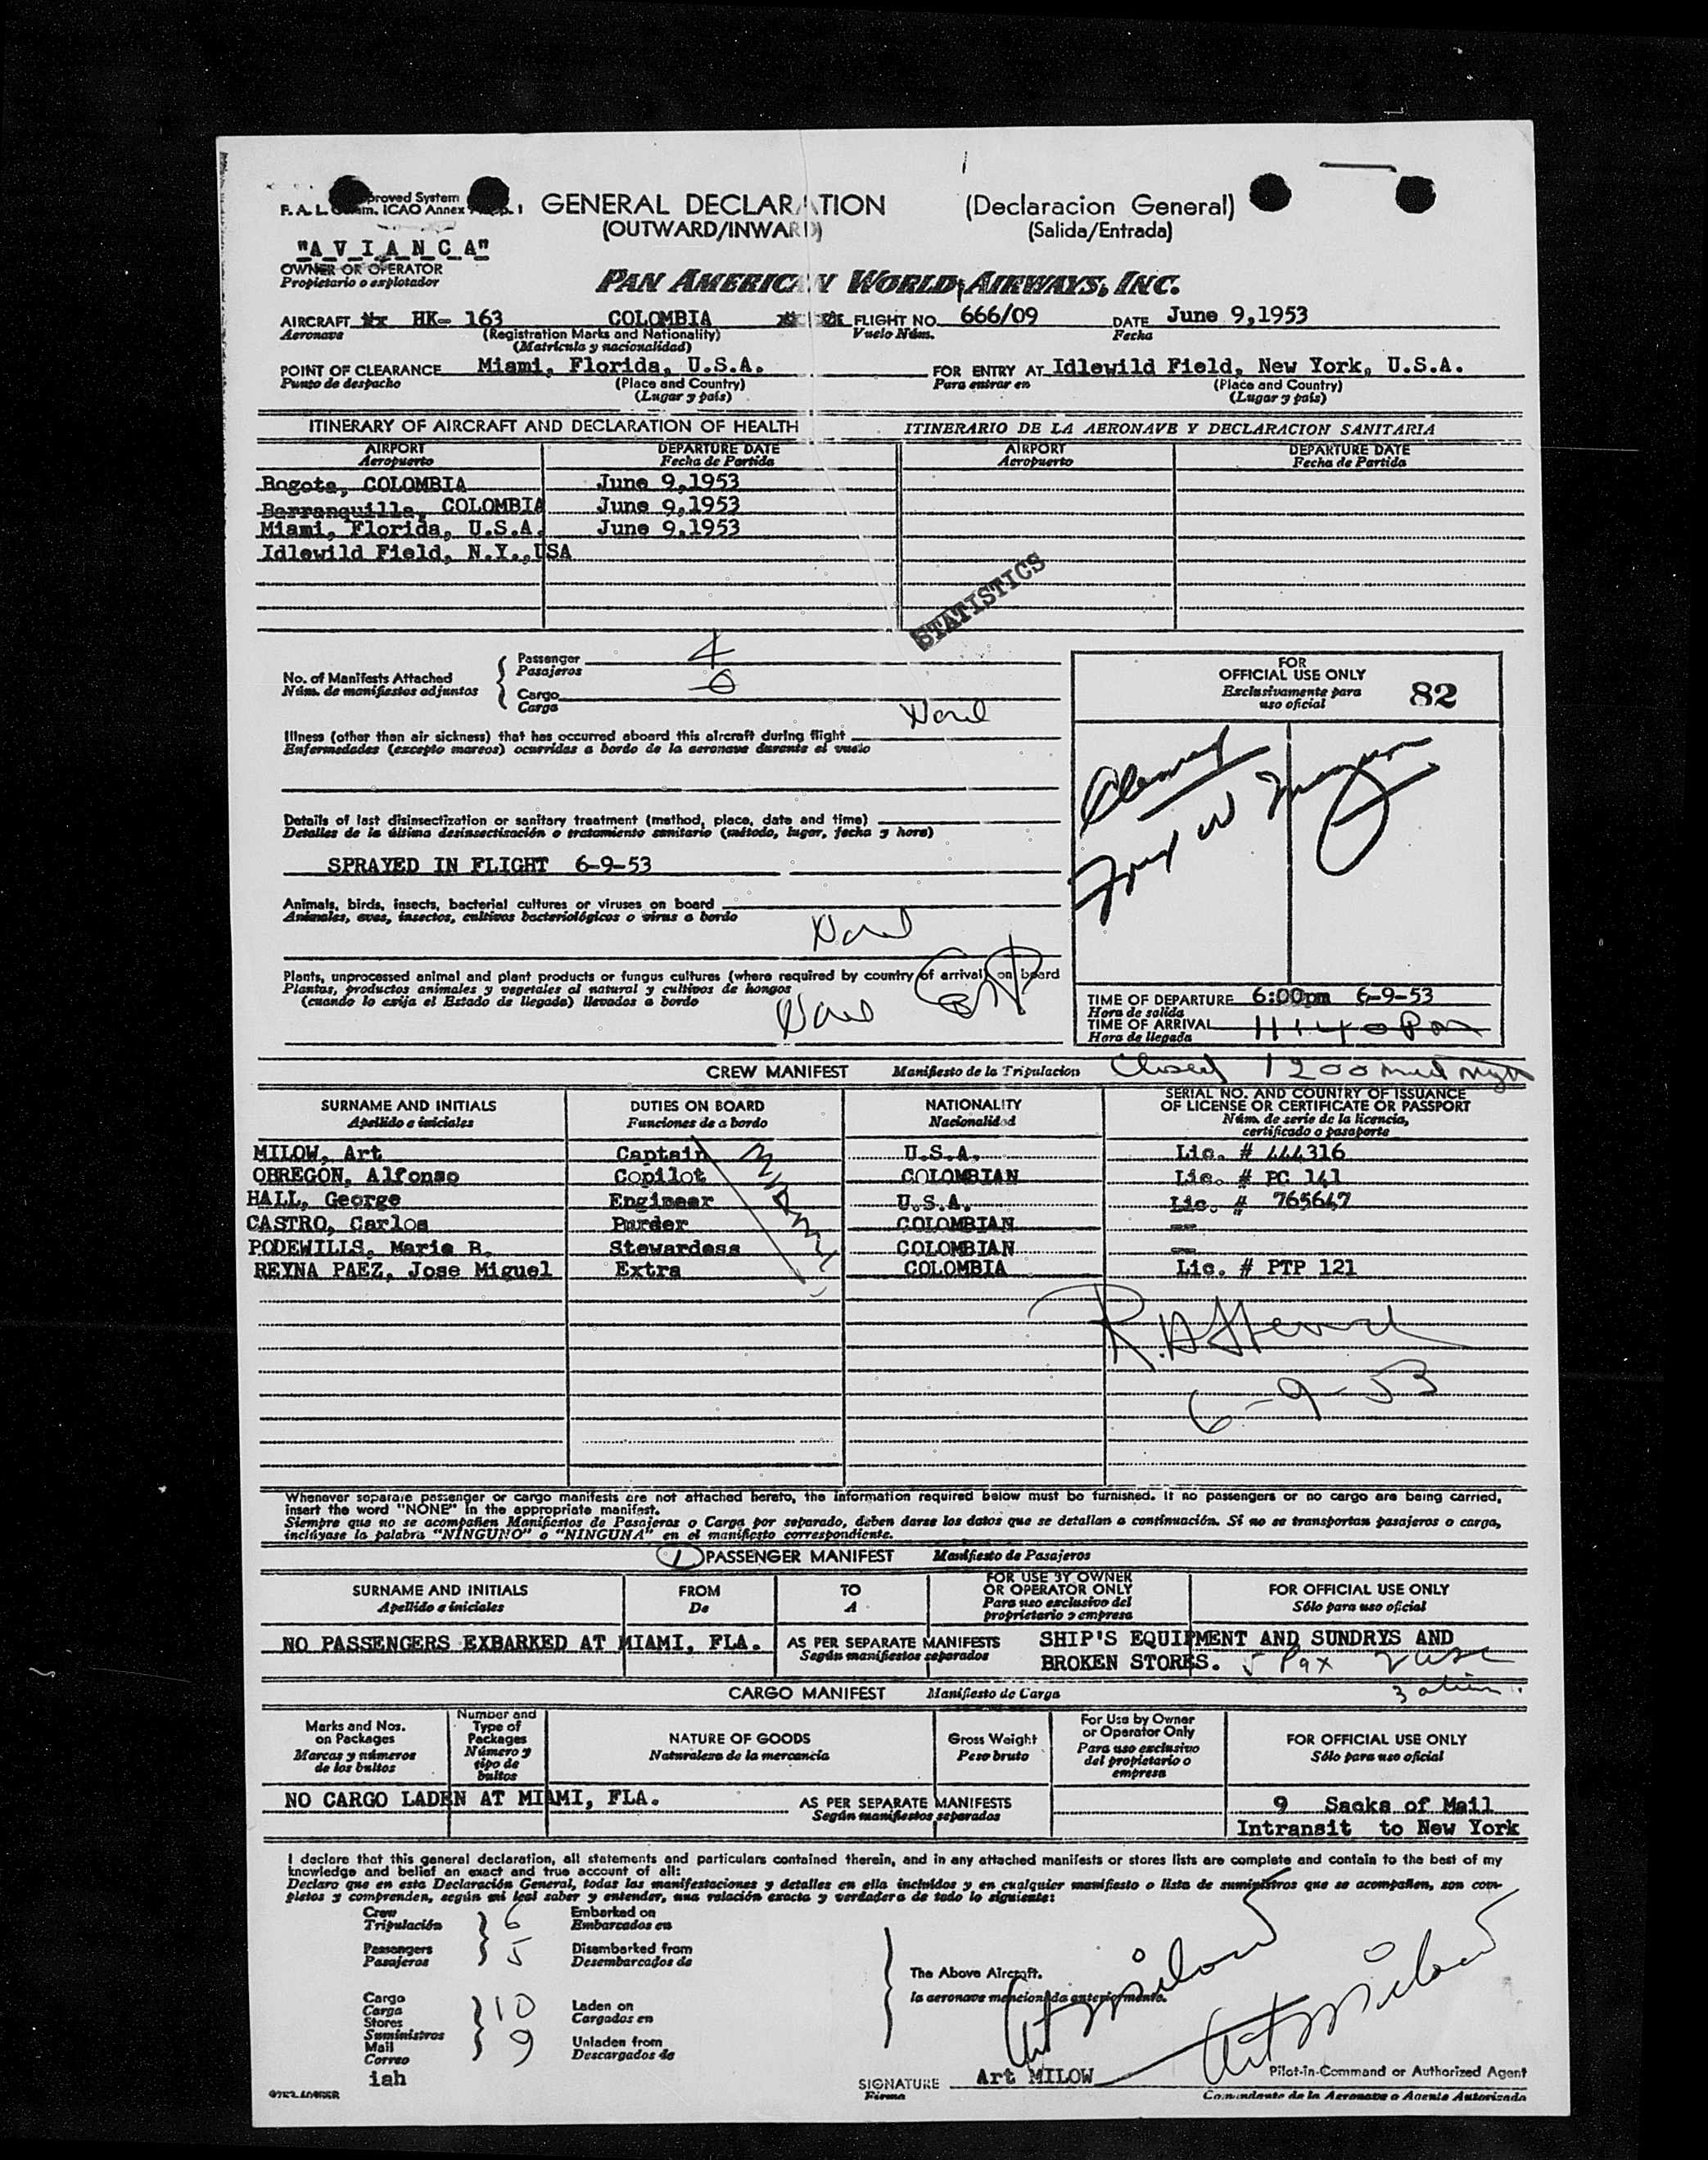 GENERAL DECLARATION (Declaracion General)
(OUTWARD/INWARD) (Salida/Entrada)
proved System
F. A. L. m. ICAO Annex 1
"A V I A N C A"
OWNER OR OPERATOR
Propietario o explotador
PAN AMERICAN WORLD AIRWAYS, INC.
AIRCRAFT HK- 163 COLOMBIA FLIGHT NO. 666/09 DATE June 9,1953
Aeronave (Registration Marks and Nationality) Vuelo Núm. Fecha
(Matrícula y nacionalidad)
POINT OF CLEARANCE Miami, Florida, U.S.A. FOR ENTRY AT Idlewild Field, New York, U.S.A.
Punto de despacho (Place and Country) Para entrar en (Place and Country)
(Lugar y país) (Lugar y país)
ITINERARY OF AIRCRAFT AND DECLARATION OF HEALTH ITINERARIO DE LA AERONAVE Y DECLARACION SANITARIA
AIRPORT DEPARTURE DATE AIRPORT DEPARTURE DATE
Aeropuerto Fecha de Partida Aeropuerto Fecha de Partida
Bogota, COLOMBIA June 9,1953
Barranquilla, COLOMBIA June 9,1953
Miami, Florida, U.S.A. June 9,1953
Idlewild Field, N.Y.,USA
STATISTICS
No. of Manifests Attached
Núm. de manifiestos adjuntos
Passenger 4
Pasajeros
Cargo 0
Carga
Illness (other than air sickness) that has occurred aboard this aircraft during flight None
Enfermedades (excepto mareos) ocurridas a bordo de la aeronave durante el vuelo
Details of last disinsectization or sanitary treatment (method, place, date and time)
Detalles de la última desinsectización o tratamiento sanitario (método, lugar, fecha y hora)
SPRAYED IN FLIGHT 6-9-53
Animals, birds, insects, bacterial cultures or viruses on board
Animales, aves, insectos, cultivos bacteriológicos o virus a bordo
None
Plants, unprocessed animal and plant products or fungus cultures (where required by country of arrival) on board
Plantas, productos animales y vegetales al natural y cultivos de hongos
(cuando lo exija el Estado de llegada) llevados a bordo
None
FOR
OFFICIAL USE ONLY
Exclusivamente para
uso oficial
82
TIME OF DEPARTURE 6:00pm 6-9-53
Hora de salida
TIME OF ARRIVAL 11:40 Pm
Hora de llegada
Closed 1200 mid night
CREW MANIFEST Manifiesto de la Tripulacion
SURNAME AND INITIALS DUTIES ON BOARD NATIONALITY SERIAL NO. AND COUNTRY OF ISSUANCE
OF LICENSE OR CERTIFICATE OR PASSPORT
Apellido e iniciales Funciones de a bordo Nacionalidad Núm. de serie de la licencia,
certificado o pasaporte
MILOW, Art Captain U.S.A. Lic. # 444316
OBREGON, Alfonso Copilot COLOMBIAN Lic. # PC 141
HALL, George Engineer U.S.A. Lic. # 765647
CASTRO, Carlos Purder COLOMBIAN --
PODEWILLS, Marie B. Stewardess COLOMBIAN --
REYNA PAEZ, Jose Miguel Extra COLOMBIA Lic. # PTP 121
MIAMI
6-9-53
Whenever separate passenger or cargo manifests are not attached hereto, the information required below must be furnished. If no passengers or no cargo are being carried,
insert the word "NONE" in the appropriate manifest.
Siempre que no se acompañen Manifiestos de Pasajeros o Carga por separado, deben darse los datos que se detallan a continuación. Si no se transportan pasajeros o carga,
inclúyase la palabra "NINGUNO" o "NINGUNA" en el manifiesto correspondiente.
1 PASSENGER MANIFEST Manifiesto de Pasajeros
SURNAME AND INITIALS FROM TO FOR USE BY OWNER OR OPERATOR ONLY FOR OFFICIAL USE ONLY
Apellido e iniciales De A Para uso exclusivo del propietario o empresa Sólo para uso oficial
NO PASSENGERS EXBARKED AT MIAMI, FLA. AS PER SEPARATE MANIFESTS SHIP'S EQUIPMENT AND SUNDRYS AND
Según manifiestos separados BROKEN STORES. 5 Pax 2 USC
3 alien
CARGO MANIFEST Manifiesto de Carga
Marks and Nos. on Packages Number and Type of Packages NATURE OF GOODS Gross Weight For Use by Owner or Operator Only FOR OFFICIAL USE ONLY
Marcas y números de los bultos Número y tipo de bultos Naturaleza de la mercancía Peso bruto Para uso exclusivo del propietario o empresa Sólo para uso oficial
NO CARGO LADEN AT MIAMI, FLA. AS PER SEPARATE MANIFESTS 9 Sacks of Mail
Según manifiestos separados Intransit to New York
I declare that this general declaration, all statements and particulars contained therein, and in any attached manifests or stores lists are complete and contain to the best of my
knowledge and belief an exact and true account of all:
Declaro que en esta Declaración General, todas las manifestaciones y detalles en ella incluídos y en cualquier manifiesto o lista de suministros que se acompañen, son com-
pletos y comprenden, según mi leal saber y entender, una relación exacta y verdadera de todo lo siguiente:
Crew 6 Embarked on
Tripulación Embarcados en
Passengers 5 Disembarked from
Pasajeros Desembarcados de
The Above Aircraft.
la aeronave mencionada anteriormente.
Cargo 10 Laden on
Carga Cargados en
Stores
Suministros
Mail 9 Unladen from
Correo Descargados de
iah
Art Milow Art Milow
SIGNATURE Art MILOW Pilot-in-Command or Authorized Agent
Firma Comandante de la Aeronave o Agente Autorizado